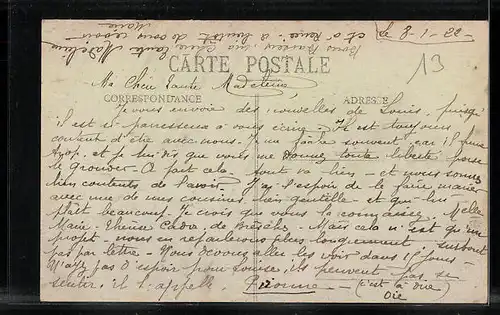 le 8-1-22-
Bons Baisers, ma chère tante Madeleine
et à René à bientôt de vous revoir
Marie
CARTE POSTALE
13
Ma Chère Tante Madeleine
CORRESPONDANCE
ADRESSE
Je vous envoie des nouvelles de Louis, puisqu'
il est si paresseux à vous écrire. Il est toujours
content d'être avec nous. Je me fâche souvent, car il fume
trop. et je suis sûr que vous me donnez toute liberté pour
le gronder. A part cela, tout va bien - et nous sommes
bien contents de l'avoir. J'ai l'espoir de le faire marier
avec une de mes cousines bien gentille et qui lui
plaît beaucoup. Je crois que vous la connaissez, Melle
Marie-Thérèse de Mais cela n'est qu'un
projet - nous en reparlerons plus longuement, surtout
pas par lettre - Nous devons aller les voir dans 15 jours
N'aye pas d'espoir pour Louise, ils ne peuvent pas se
sentir, il l'appelle (c'est à dire
Oie